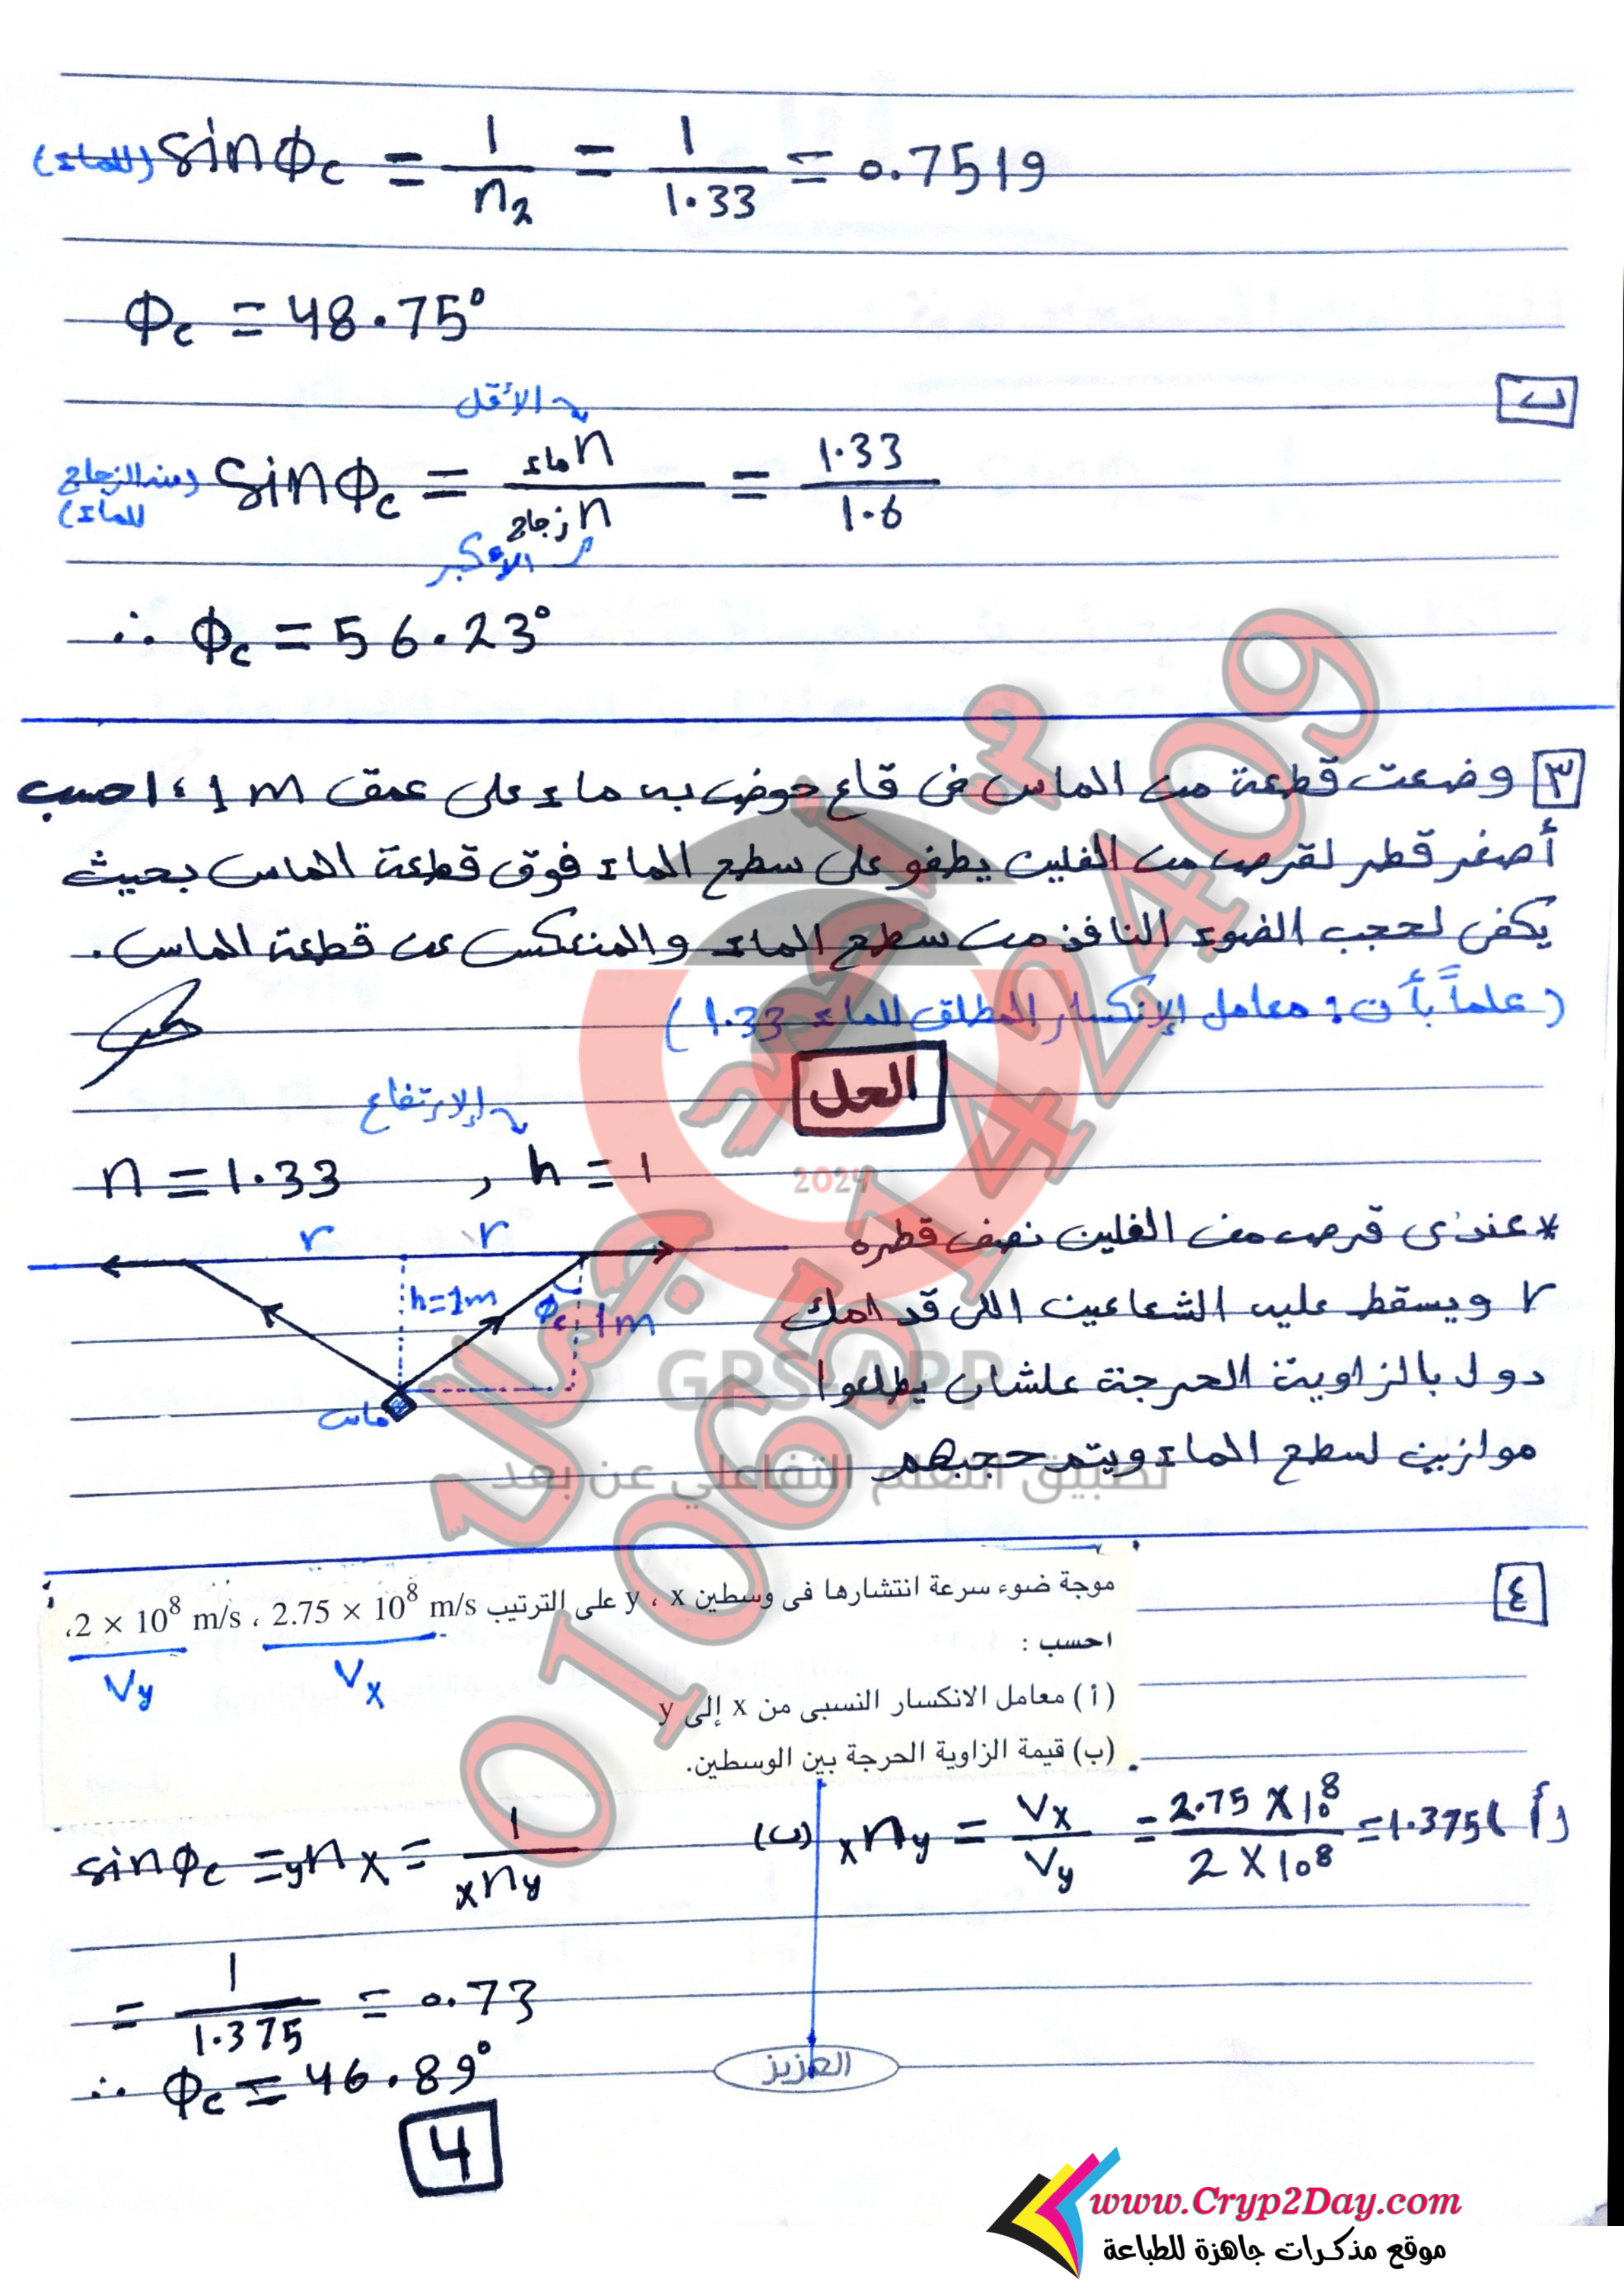 (للماء) sinϕc = 1/n2 = 1/1.33 = 0.7519
ϕc = 48.75°
ب
الأقل
(من الزجاج للماء) sinϕc = n ماء / n زجاج = 1.33/1.6
الأكبر
∴ ϕc = 56.23°
٣ وضعت قطعة من الماس فى قاع حوض به ماء على عمق 1 m ، احسب
أصغر قطر لقرص من الفلين يطفو على سطح الماء فوق قطعة الماس بحيث
يكفى لحجب الضوء النافذ من سطح الماء والمنعكس عن قطعة الماس .
(علماً بأن : معامل الإنكسار المطلق للماء 1.33)
الحل
الإرتفاع
n = 1.33 , h = 1
2024
* عندى قرص من الفلين نصف قطره
r ويسقط عليه الشعاعين اللى قدامك
دول بالزاوية الحرجة علشان يطلعوا
موازيين لسطح الماء ويتم حجبهم
r r
h=1m ϕc 1m
ماس
GPS-APP
تطبيق التعلم التفاعلي عن بعد
م. أحمد جمال
01065142409
٤
موجة ضوء سرعة انتشارها فى وسطين x ، y على الترتيب 2.75 × 10⁸ m/s ، 2 × 10⁸ m/s،
Vy Vx
احسب :
(أ) معامل الانكسار النسبى من x إلى y
(ب) قيمة الزاوية الحرجة بين الوسطين.
(أ) xny = Vx/Vy = 2.75 × 10⁸ / 2 × 10⁸ = 1.375
(ب) sinϕc = ynx = 1/xny
= 1/1.375 = 0.73
∴ ϕc = 46.89°
العزيز
4
www.Cryp2Day.com
موقع مذكرات جاهزة للطباعة